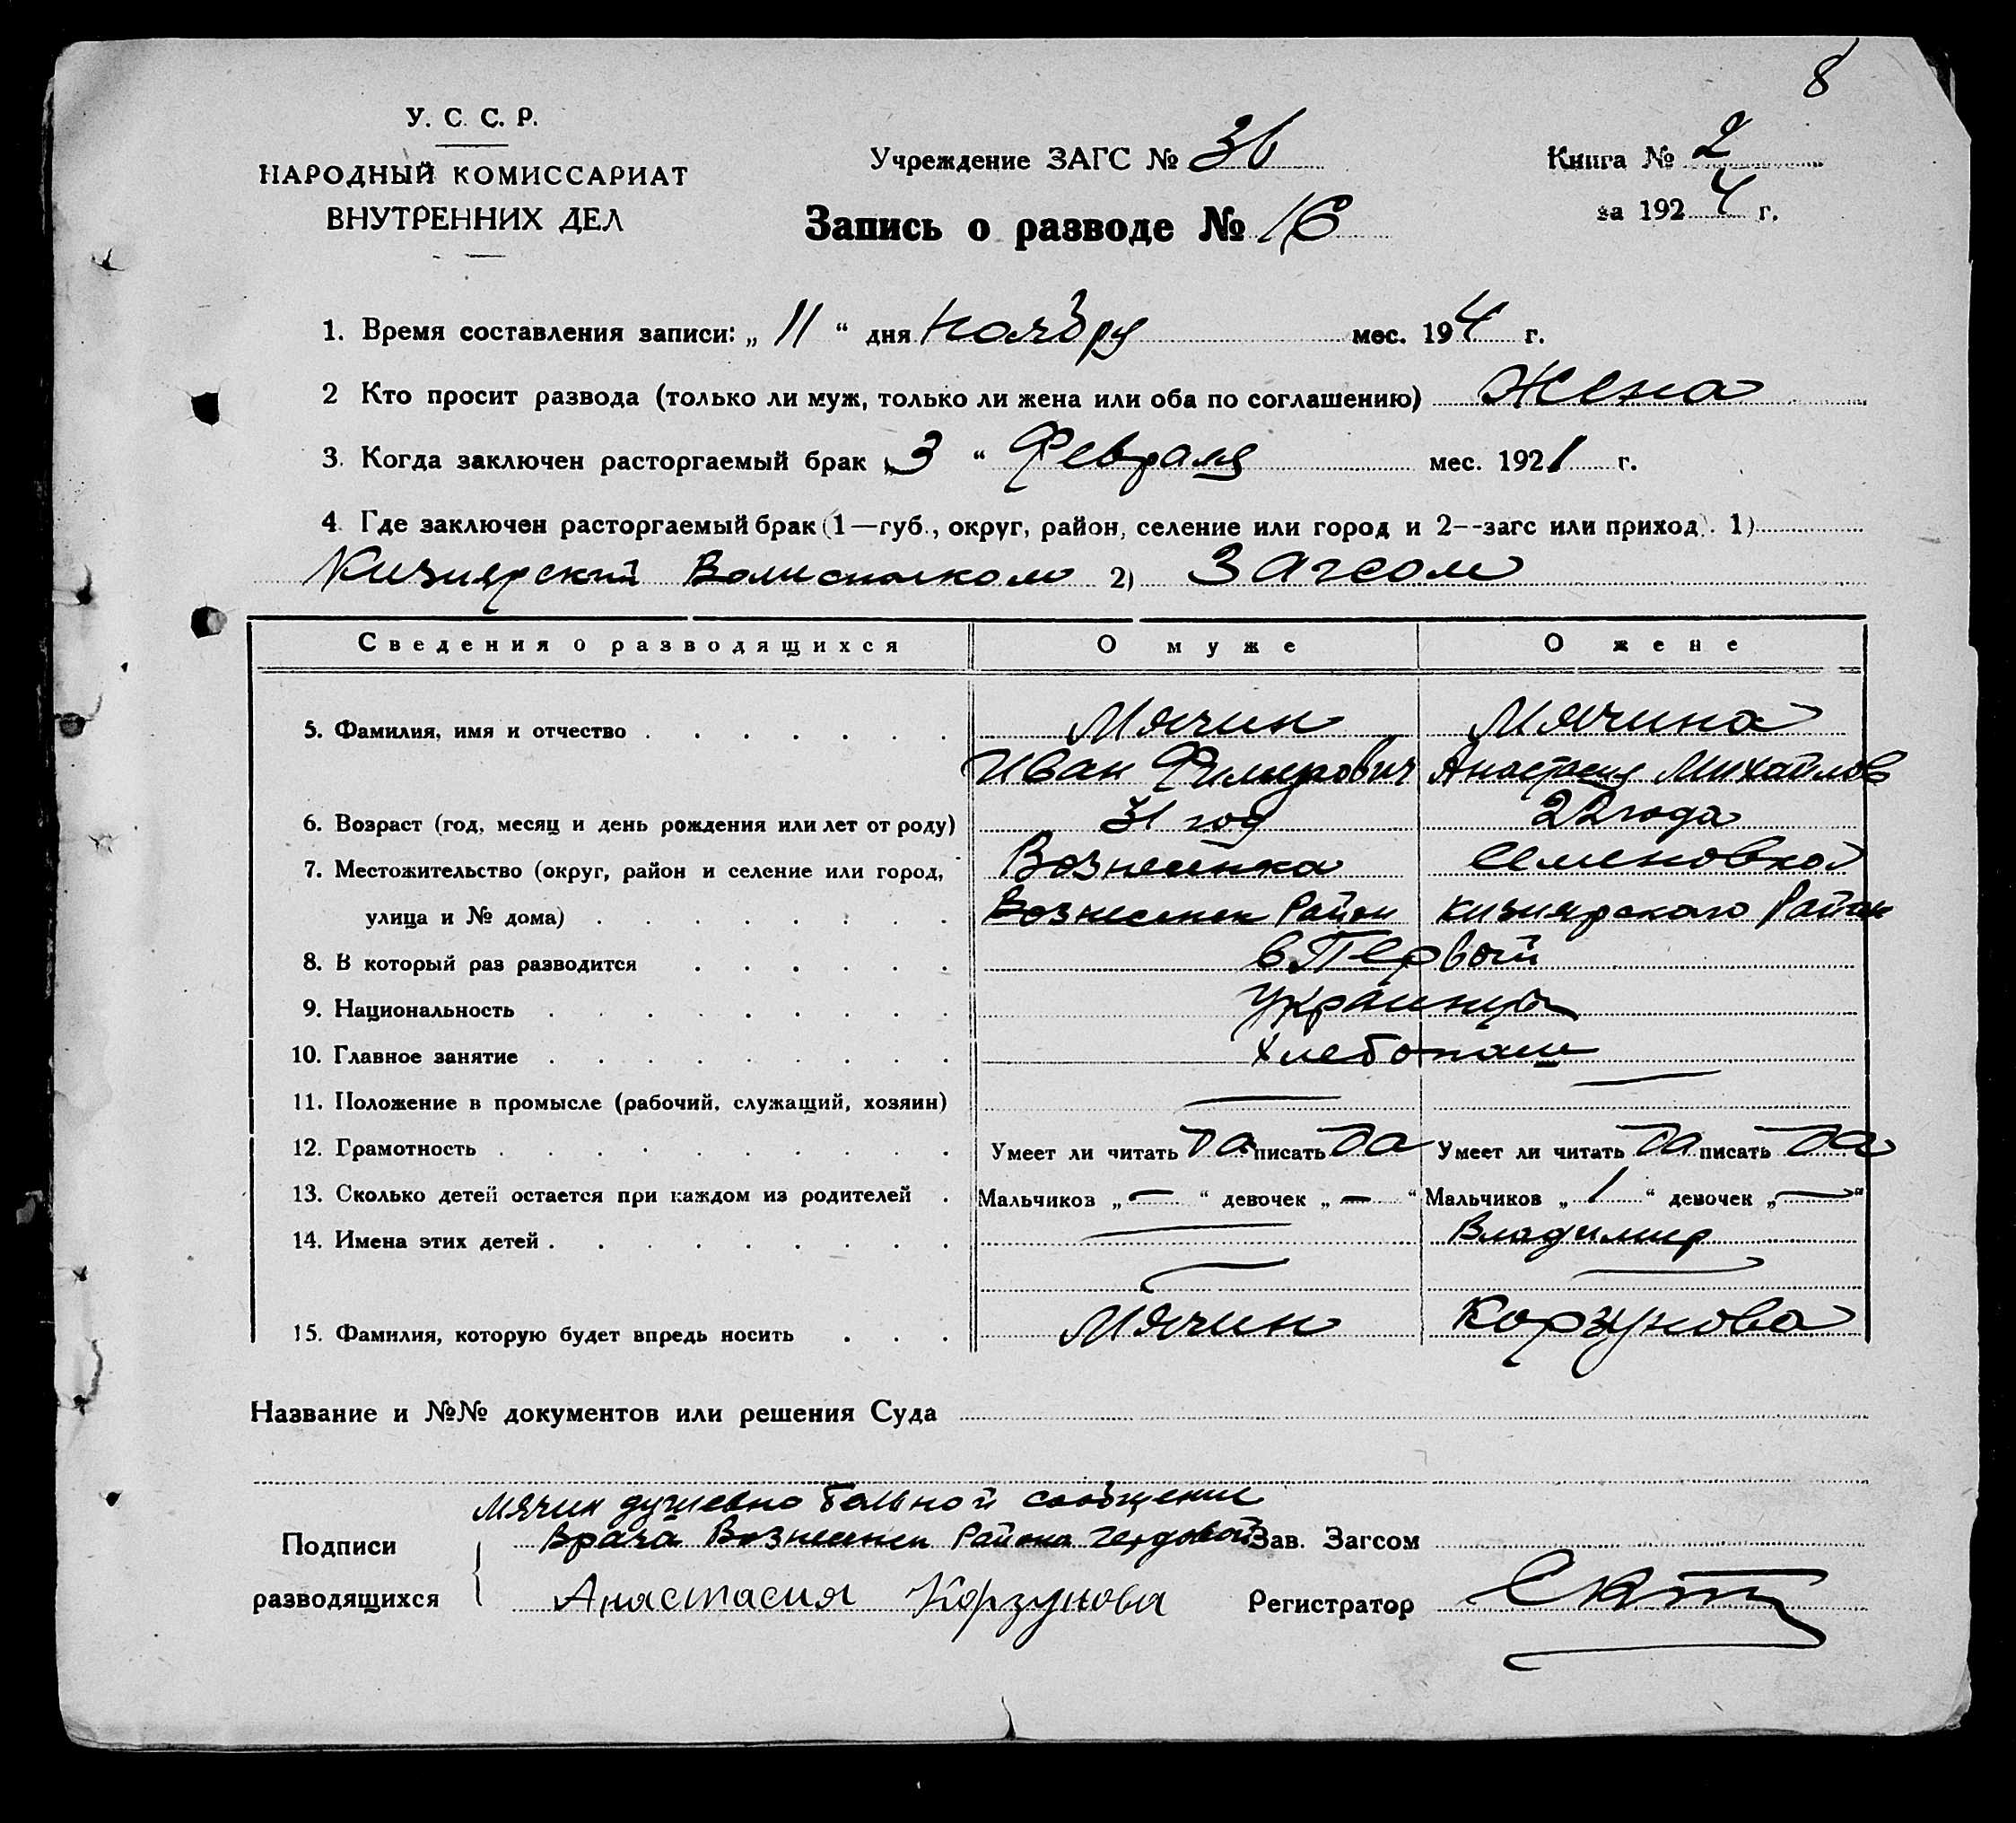 8
У. С. С. Р.
НАРОДНЫЙ КОМИССАРИАТ
ВНУТРЕННИХ ДЕЛ
Учреждение ЗАГС № 36
Запись о разводе № 16
Книга № 2
за 1924 г.
1. Время составления записи: „ 11 “ дня ноября мес. 194 г.
2 Кто просит развода (только ли муж, только ли жена или оба по соглашению) Жена
3. Когда заключен расторгаемый брак „3 “ Февраля мес. 1921 г.
4. Где заключен расторгаемый брак (1—губ., округ, район, селение или город и 2--загс или приход). 1)
Кизиярский Волисполком 2) Загсом
Сведения о разводящихся О муже О жене
5. Фамилия, имя и отчество Мячин Мячина
Иван Анастасия Михайлов
6. Возраст (год, месяц и день рождения или лет от роду) 31 год 22 года
7. Местожительство (округ, район и селение или город, Вознесенка Семеновкой
улица и № дома) Вознесенск Район Кизиярского Район
8. В который раз разводится в Первой
9. Национальность Украинцы
10. Главное занятие Хлебопаш
11. Положение в промысле (рабочий, служащий, хозяин) — —
12. Грамотность Умеет ли читать да писать да Умеет ли читать да писать да
13. Сколько детей остается при каждом из родителей Мальчиков „ — “ девочек „ — “ Мальчиков „ 1 “ девочек „ — “
14. Имена этих детей — Владимир
— —
15. Фамилия, которую будет впредь носить Мячин Корзунова
Название и №№ документов или решения Суда
Мячин душевно больной сообщение
Подписи Врача Вознесенск Района Зав. Загсом
разводящихся Анастасия Корзунова Регистратор